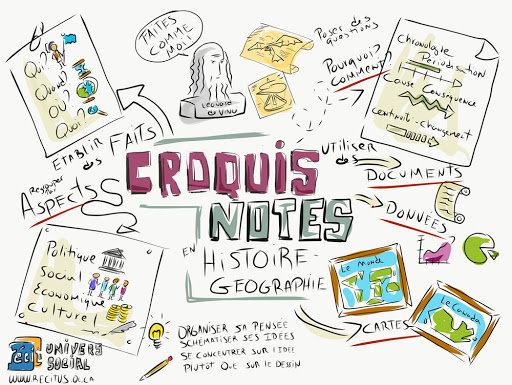 FAITES
COMME
MOI
LEONARD
DE VINCI
Qui?
Quand?
Où?
Quoi?
ETABLIR
des
FAITS
Regrouper
par
ASPECTS
Politique
Social
Economique
Culturel
CROQUIS
NOTES
EN
HISTOIRE-
GEOGRAPHIE
Poser des
questions
Pourquoi?
Comment?
Chronologie
Périodisation
Cause Conséquence
Continuité-changement
UTILISER
DES
DOCUMENTS
DONNÉES
CARTES
Le monde
Le Canada
ORGANISER SA PENSÉE
SCHÉMATISER SES IDÉES
SE CONCENTRER SUR L'IDÉE
PLUTÔT QUE SUR LE DESSIN
récit
UNIVERS
SOCIAL
WWW.RECITUS.QC.CA